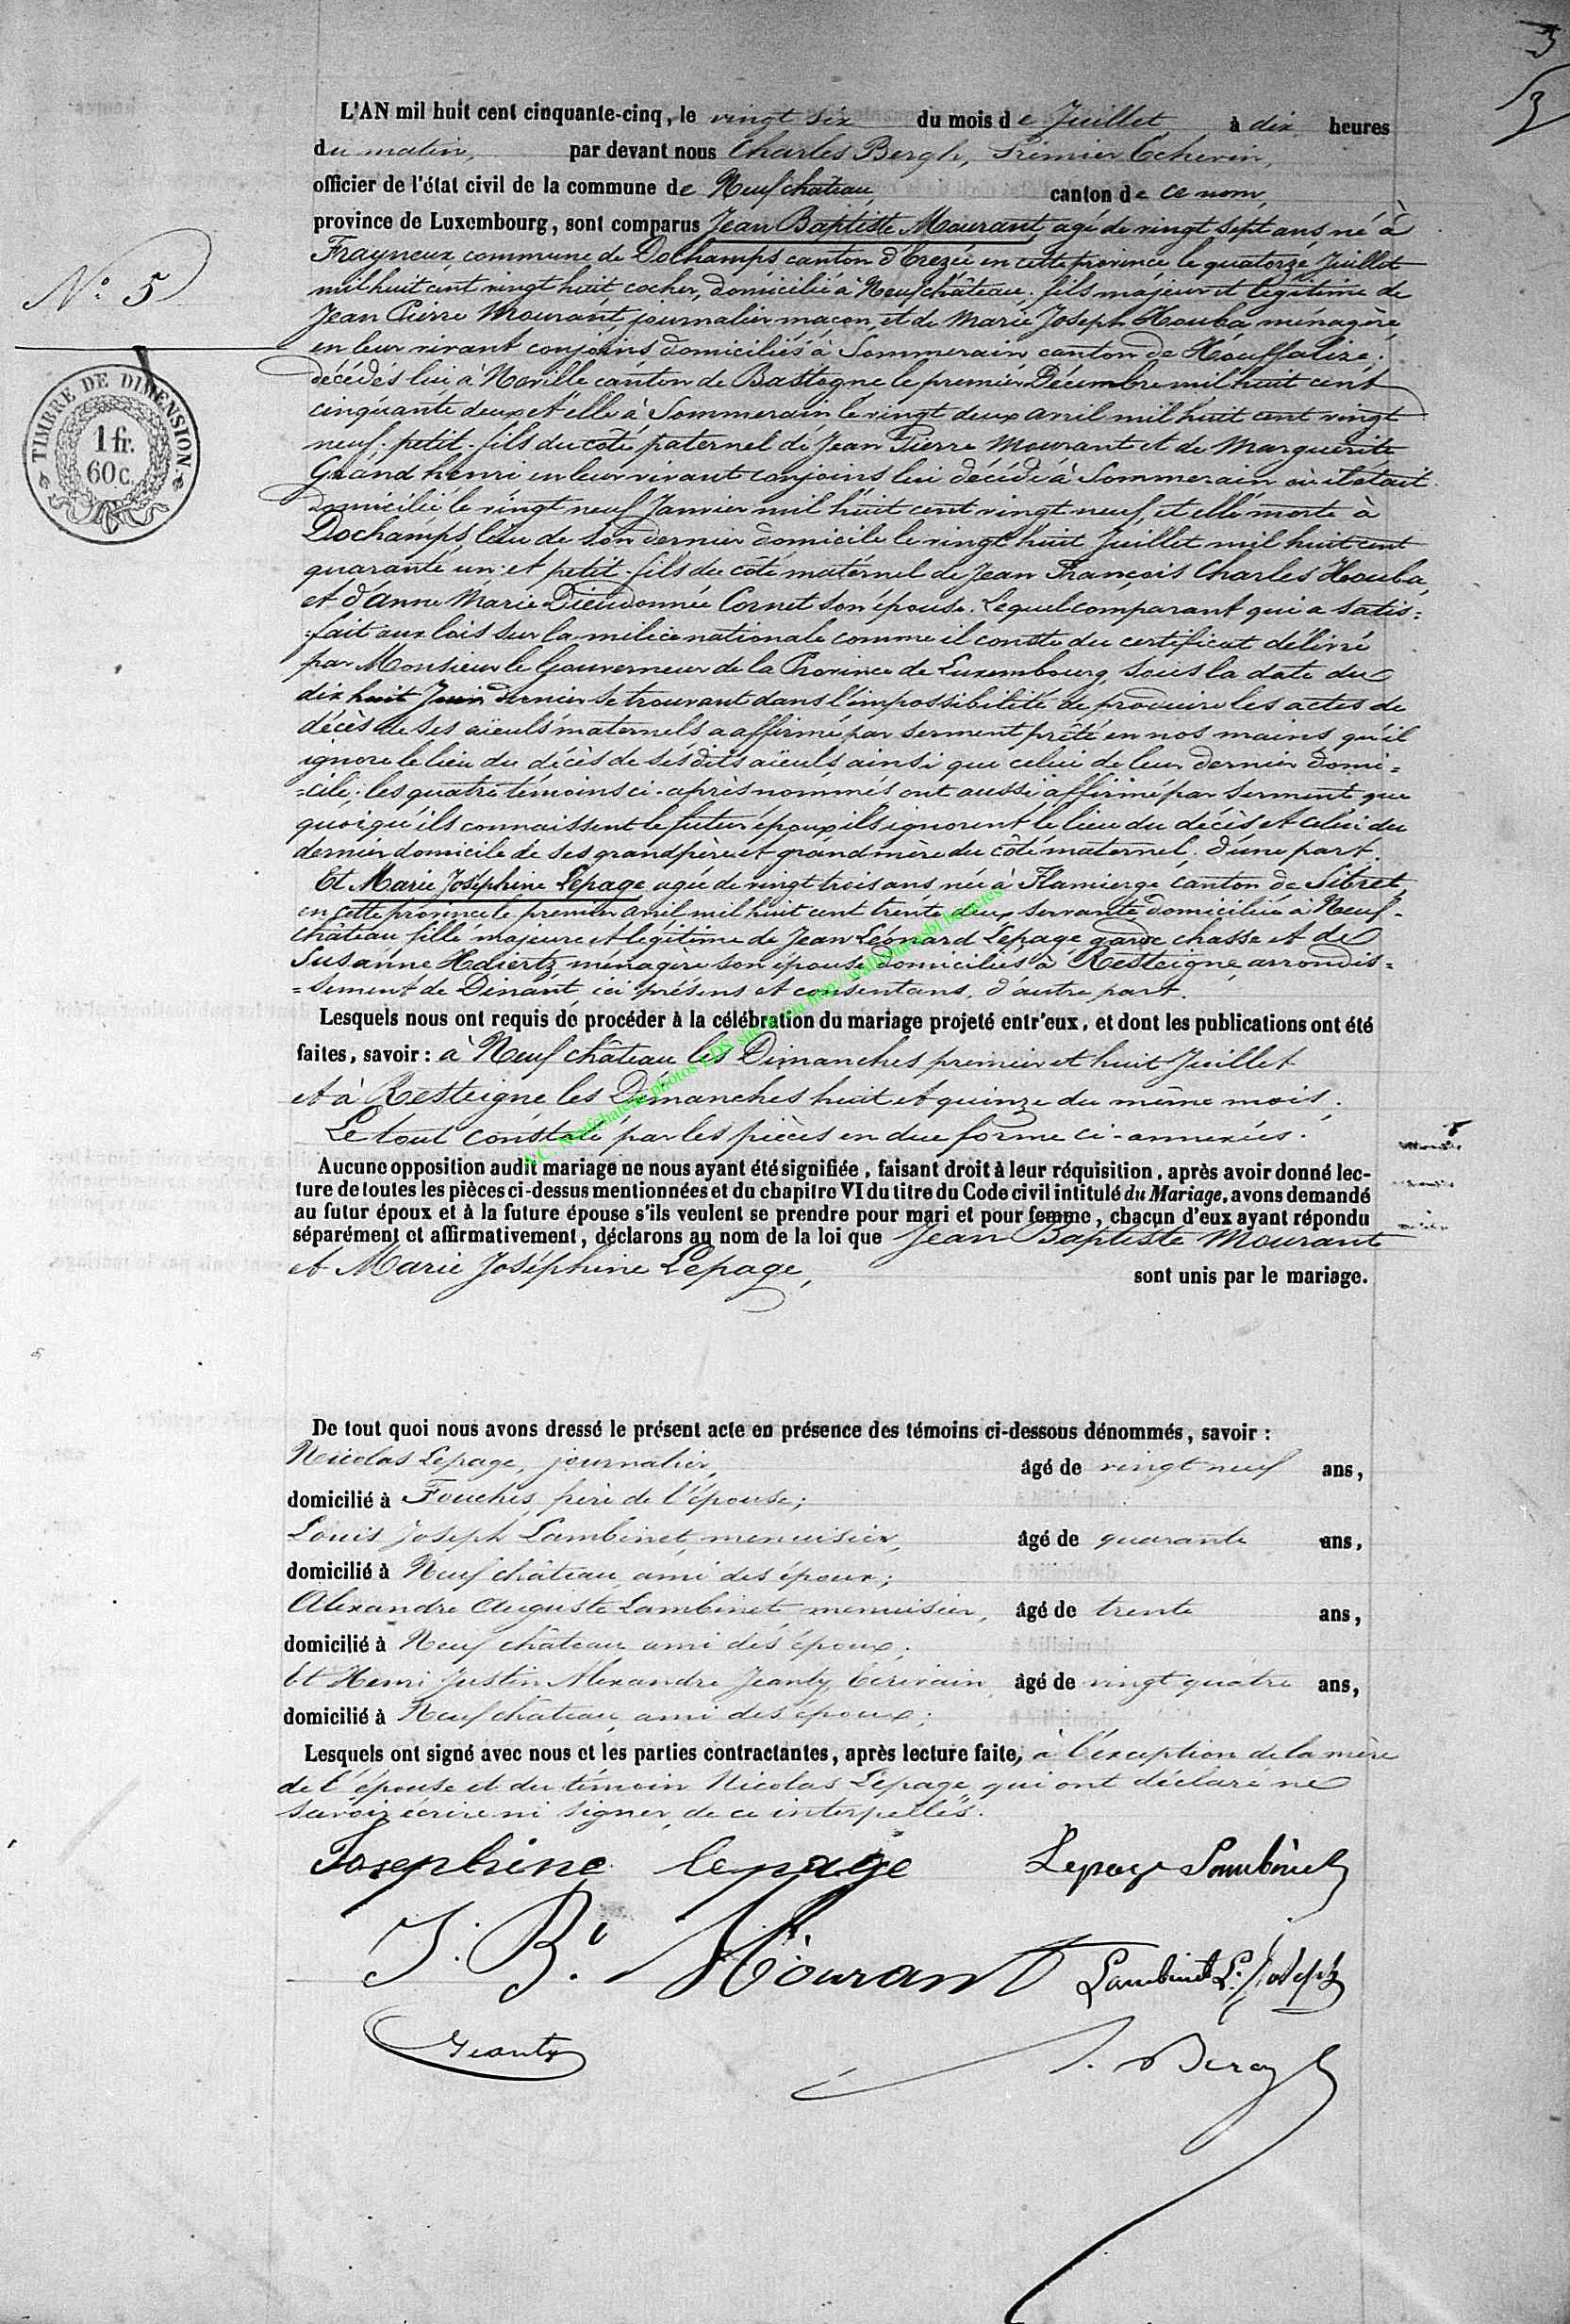 3
3
L'AN mil huit cent cinquante-cinq, le vingt six du mois de Juillet à dix heures
du matin, par devant nous Charles Bergh, Premier Echevin,
officier de l'état civil de la commune de Neufchâteau, canton de ce nom,
province de Luxembourg, sont comparus Jean Baptiste Mourant, agé de vingt sept ans, né à
Frayneux, commune de Dochamps canton d'Erezée en cette province le quatorze Juillet
mil huit cent vingt huit cocher, domicilié à Neufchâteau; fils majeur et légitime de
N° 5
Jean Pierre Mourant, journalier maçon, et de Marie Joseph Houba ménagère,
en leur vivant conjoins domiciliés à Sommerain canton de Houffalize;
décédés lui à Noville canton de Bastogne le premier Décembre mil huit cent
cinquante deux et elle à Sommerain le vingt deux avril mil huit cent vingt
TIMBRE DE DIMENSION
1 fr.
60 c.
neuf; petit-fils du côté paternel de Jean Pierre Mourant et de Marguerite
Grand henri en leur vivant conjoins lui décédé à Sommerain où il était
domicilié le vingt neuf Janvier mil huit cent vingt neuf, et elle morte à
Dochamps, lieu de son dernier domicile le vingt huit Juillet mil huit cent
quarante un: et petit-fils du côté maternel de Jean François Charles Houba,
et d'Anne Marie Dieudonnée Cornet son épouse. Lequel comparant qui a satis=
=fait aux lois sur la milice nationale comme il conste du certificat délivré
par Monsieur le Gouverneur de la Province de Luxembourg, sous la date du
dix huit Juin dernier se trouvant dans l'impossibilité de produire les actes de
décès de ses aïeuls maternels a affirmé par serment prêté en nos mains qu'il
ignore le lieu du décès de ses dits aïeuls, ainsi que celui de leur dernier domi=
=cile; les quatre témoins ci-après nommés ont aussi affirmé par serment que
quoiqu'ils connaissent le futur époux ils ignorent le lieu du décès et celui du
dernier domicile de ses grand père et grand mère du côté maternel, d'une part.
Et Marie Joséphine Lepage, agée de vingt trois ans née à Flamierge canton de Sibret
en cette province le premier avril mil huit cent trente deux, servante, domiciliée à Neuf-
château fille majeure et légitime de Jean Léonard Lepage garde chasse et de
Susanne Hediertz ménagère son épouse domiciliés à Resteigne arrondis=
=sement de Dinant, ici présens et consentans, d'autre part.
Lesquels nous ont requis de procéder à la célébration du mariage projeté entr'eux, et dont les publications ont été
faites, savoir: à Neufchâteau les Dimanches premier et huit Juillet
et à Resteigne les Dimanches huit et quinze du même mois.
Le tout constaté par les pièces en due forme ci-annexées.
E.C. Neufchateau photos LDS site & via http://wallonia-asbl.be/actes
Aucune opposition audit mariage ne nous ayant été signifiée, faisant droit à leur réquisition, après avoir donné lec-
ture de toutes les pièces ci-dessus mentionnées et du chapitre VI du titre du Code civil intitulé du Mariage, avons demandé
au futur époux et à la future épouse s'ils veulent se prendre pour mari et pour femme, chacun d'eux ayant répondu
séparément et affirmativement, déclarons au nom de la loi que Jean Baptiste Mourant
et Marie Joséphine Lepage, sont unis par le mariage.
De tout quoi nous avons dressé le présent acte en présence des témoins ci-dessous dénommés, savoir:
Nicolas Lepage, journalier, âgé de vingt neuf ans,
domicilié à Fouches, frère de l'épouse;
Louis Joseph Lambinet, menuisier, âgé de quarante ans,
domicilié à Neufchâteau, ami des époux;
Alexandre Auguste Lambinet, menuisier, âgé de trente ans,
domicilié à Neufchâteau ami des époux;
Et Henri Justin Alexandre Jeanty, Ecrivain, âgé de vingt quatre ans,
domicilié à Neufchâteau, ami des époux;
Lesquels ont signé avec nous et les parties contractantes, après lecture faite, à l'exception de la mère
de l'épouse et du témoin Nicolas Lepage, qui ont déclaré ne
savoir écrire ni signer, de ce interpellés.
Josephine lepage Lepage Lambinet
J. Bt. Mourant Lambinet L. Joseph
Jeanty
Bergh